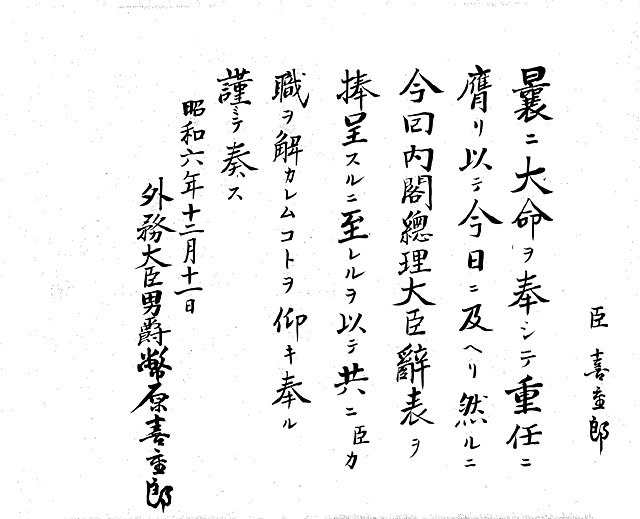 臣喜重郎
曩ニ大命ヲ奉シテ重任ニ
膺リ以テ今日ニ及ヘリ然ルニ
今回内閣總理大臣辭表ヲ
捧呈スルニ至レルヲ以テ共ニ臣カ
職ヲ解カレムコトヲ仰キ奉ル
謹ミテ奏ス
昭和六年十二月十一日
外務大臣男爵幣原喜重郎